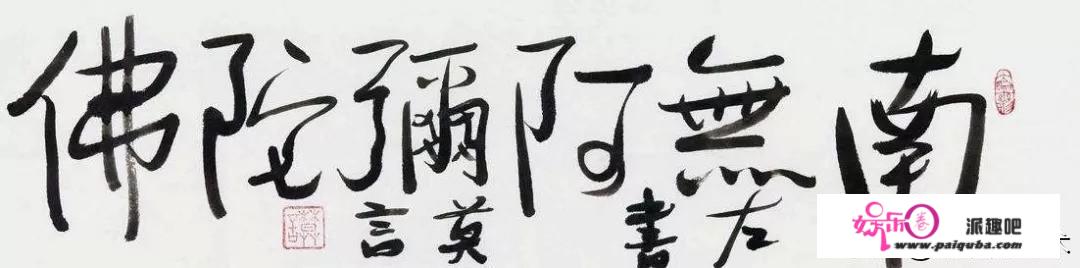 南無阿彌陀佛
左書 莫言
娱乐卷
派趣吧
www.paiquba.com